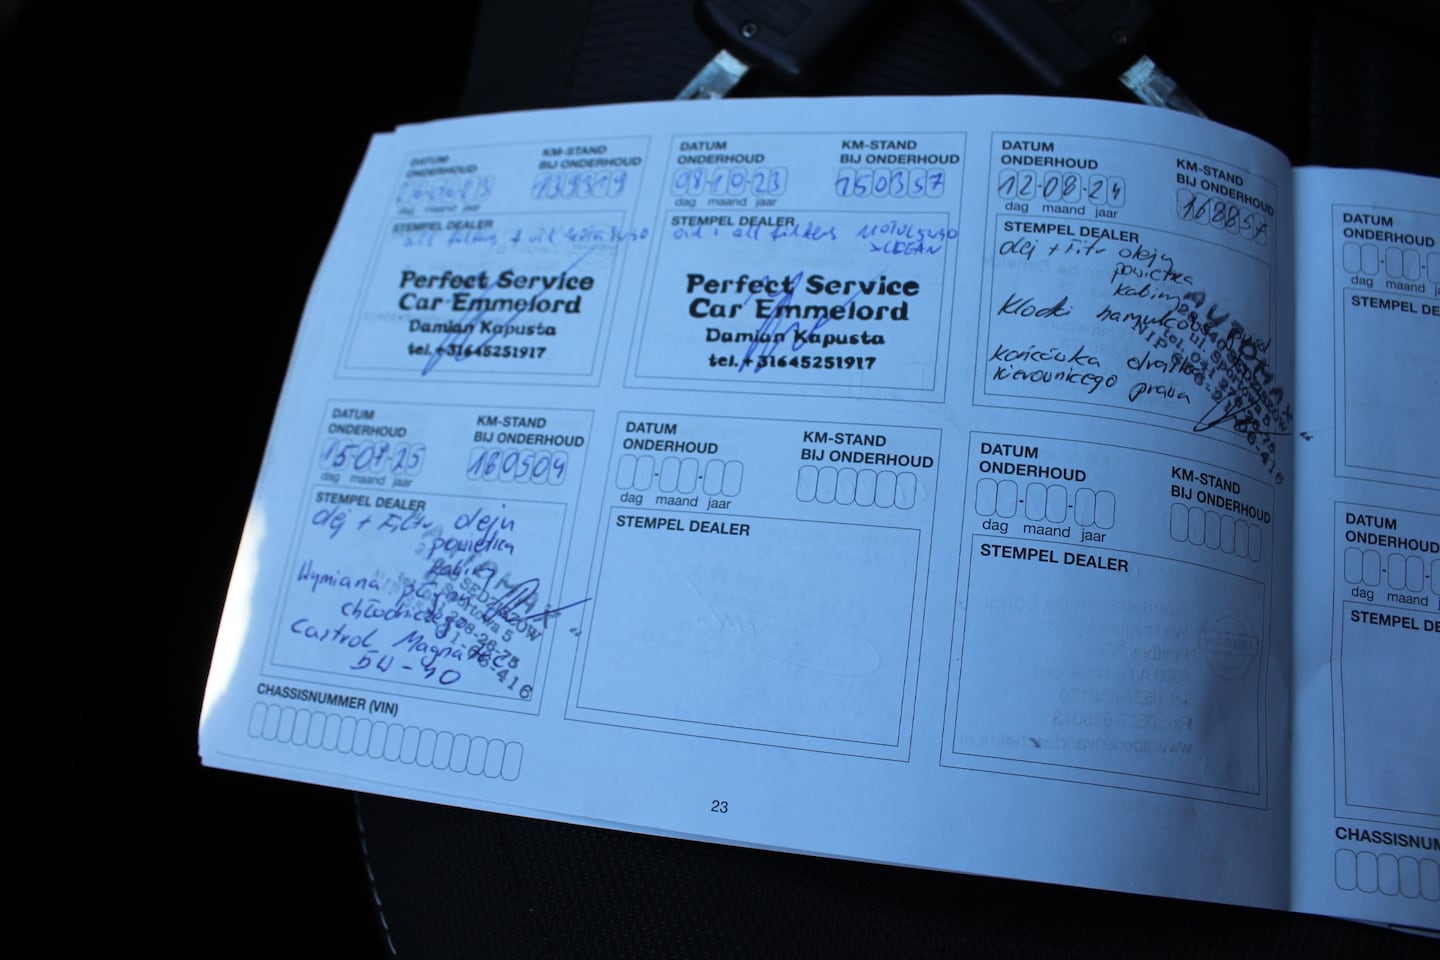 DATUM
ONDERHOUD
KM-STAND
BIJ ONDERHOUD
139319
dag maand jaar
STEMPEL DEALER
all filters + oil
Perfect Service
Car Emmelord
Damian Kapusta
tel. +31645251917
DATUM
ONDERHOUD
08-10-23
KM-STAND
BIJ ONDERHOUD
150357
dag maand jaar
STEMPEL DEALER
oil + all filters MOTUL 5W30
XCLEAN
Perfect Service
Car Emmelord
Damian Kapusta
tel. +31645251917
DATUM
ONDERHOUD
12-08-24
KM-STAND
BIJ ONDERHOUD
168857
dag maand jaar
STEMPEL DEALER
olej + Filtr oleju
powietrza
kabiny
Klocki hamulcowe
końcówka drążka
kierowniczego prawa
DATUM
ONDERHOUD
15-07-25
KM-STAND
BIJ ONDERHOUD
180504
dag maand jaar
STEMPEL DEALER
olej + Filtr oleju
powietrza
kabiny
Wymiana płynu
chłodniczego
Castrol Magnatec
5W-40
CHASSISNUMMER (VIN)
DATUM
ONDERHOUD
KM-STAND
BIJ ONDERHOUD
dag maand jaar
STEMPEL DEALER
DATUM
ONDERHOUD
KM-STAND
BIJ ONDERHOUD
dag maand jaar
STEMPEL DEALER
23
DATUM
ONDERHOUD
dag maand
STEMPEL DE
DATUM
ONDERHOUD
dag maand
STEMPEL DE
CHASSISNUM